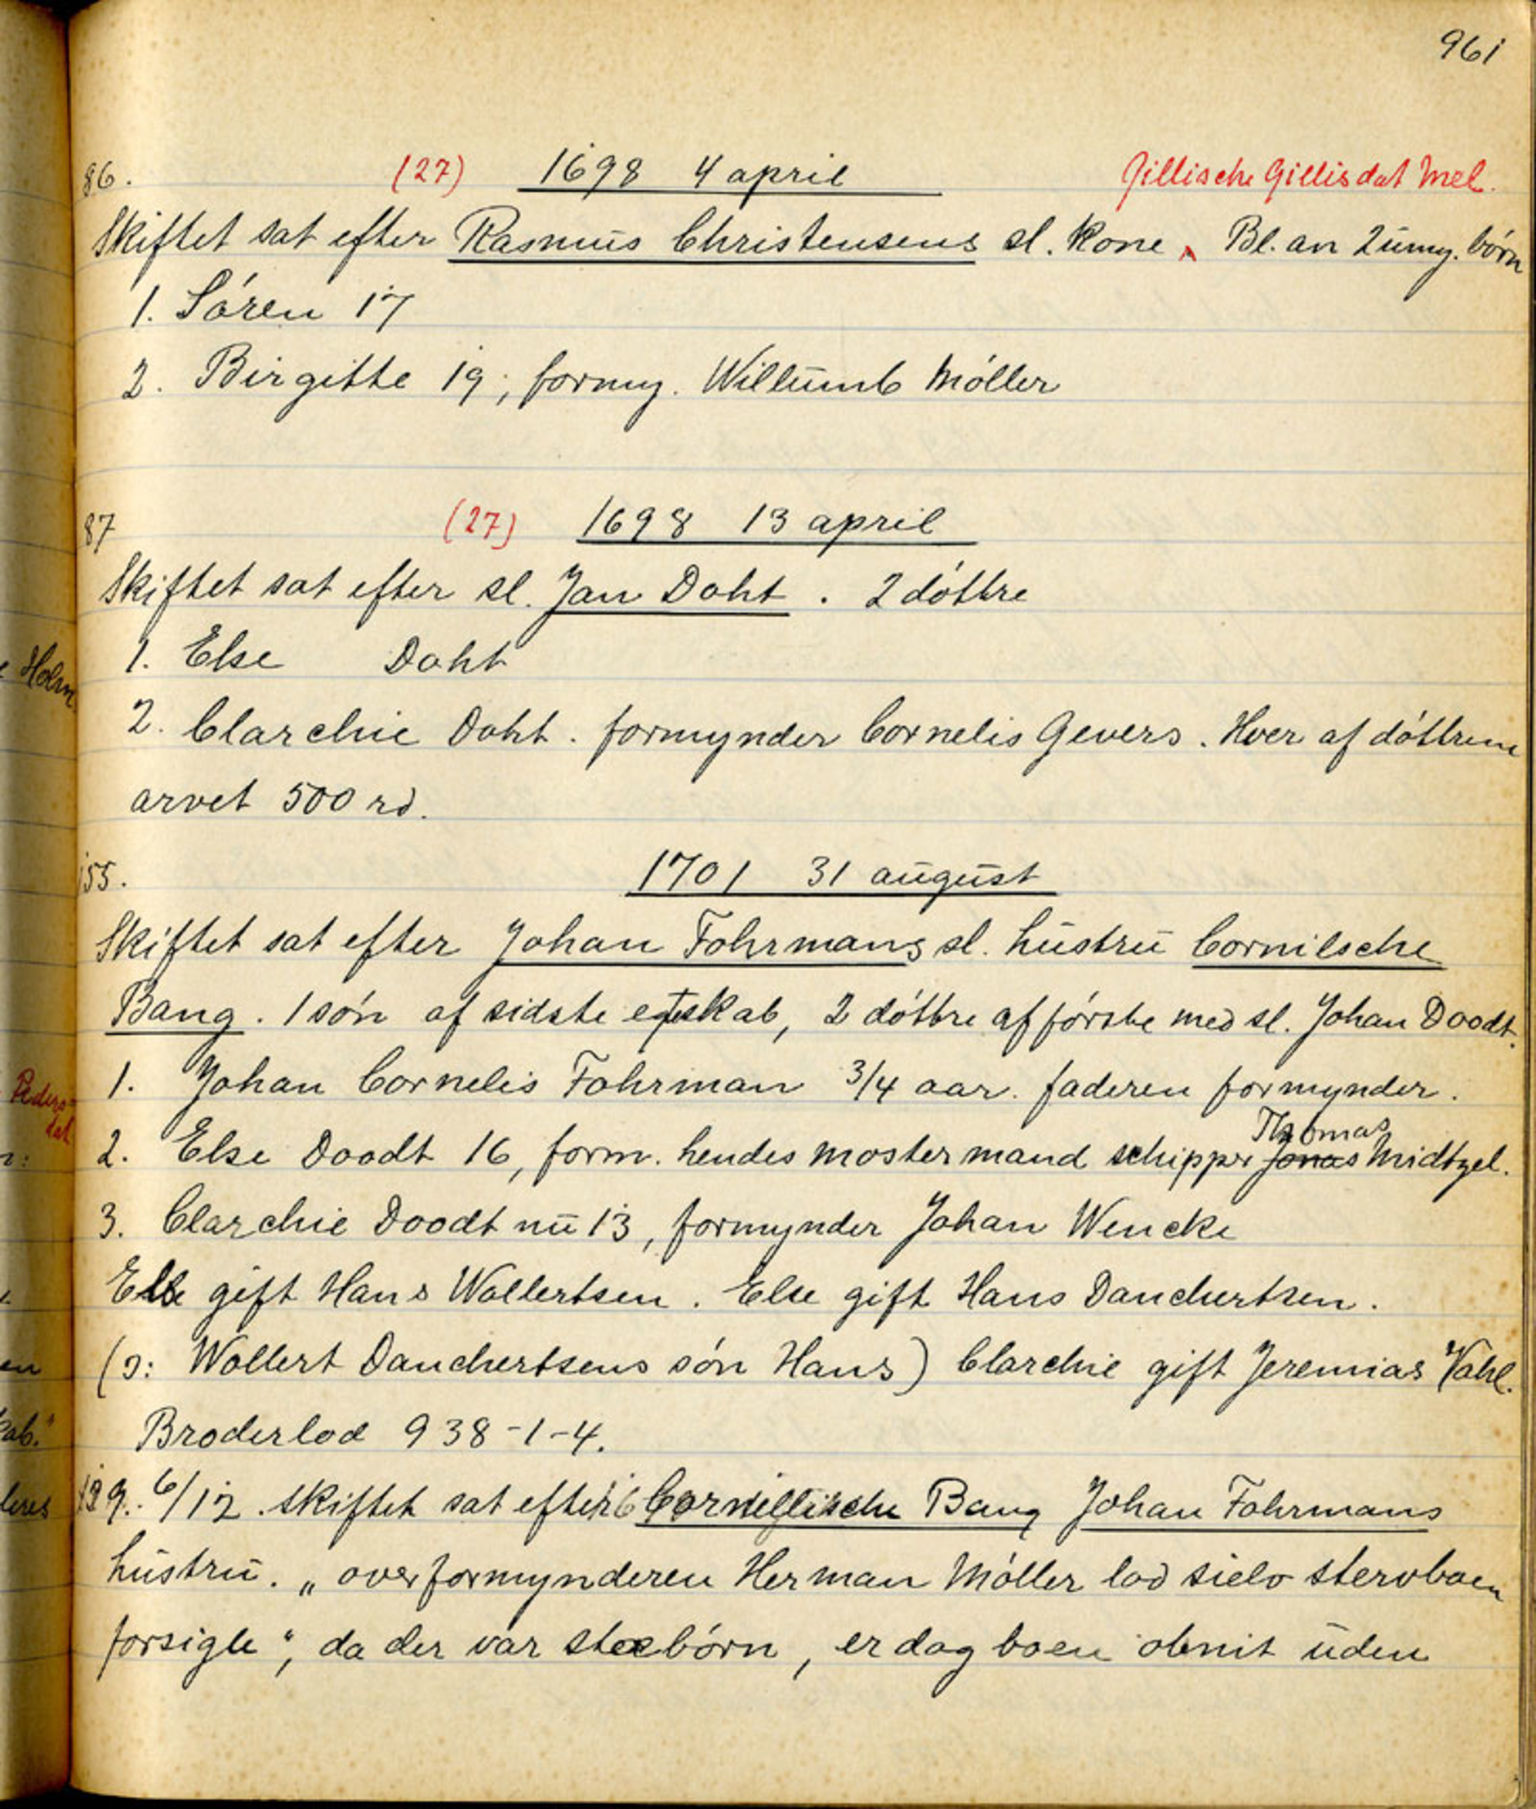 961
86. (27) 1698 4 april Gillische Gillisdat Mel.
Skiftet sat efter Rasmus Christensens sl. kone ^ Bl. an 2 umy. börn
1. Sören 17
2. Birgitte 19, formy. Willumb Möller
87 (27) 1698 13 april
Skiftet sat efter sl. Jan Doht. 2 döttre
1. Else Doht
2. Clarchie Doht. formynder Cornelis Gevers. Hver af döttrene
arvet 500 rd.
155. 1701 31 august
Skiftet sat efter Johan Fohrmans sl. hustru Cornilsche
Bang. 1 sön af sidste egteskab, 2 döttre af förste med sl. Johan Doodt.
1. Johan Cornelis Fohrman 3/4 aar. faderen formynder.
Thomas
2. Else Doodt 16, form. hendes moster mand schipper Jonas Midtzel.
3. Clarchie Doodt nu 13, formynder Johan Wencke
Else gift Hans Wollertsen. Else gift Hans Danchertsen.
(ɔ: Wollert Danchertsens sön Hans) Clarchie gift Jeremias Wahl.
Broderlod 938-1-4.
6/12. skiftet sat efter Cornellische Bang Johan Fohrmans
hustru. „overformynderen Herman Möller lod sielv stervboen
forsigle“, da der var steebörn, er dog boen obnit uden
Holm
Peders-
dat